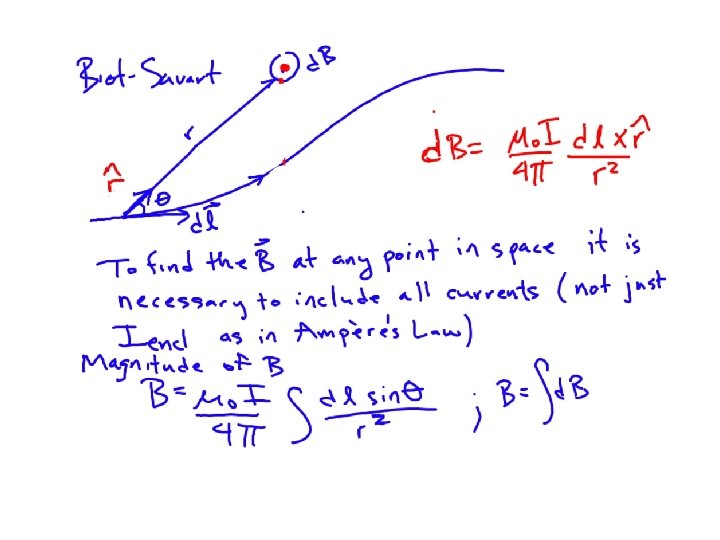 Biot-Savart
dB
r
r̂
θ
dl⃗
dB = μ₀I/4π dl × r̂/r²
To find the B⃗ at any point in space it is
necessary to include all currents (not just
Iencl as in Ampère's Law)
Magnitude of B
B = μ₀I/4π ∫ dl sinθ/r² ; B = ∫dB